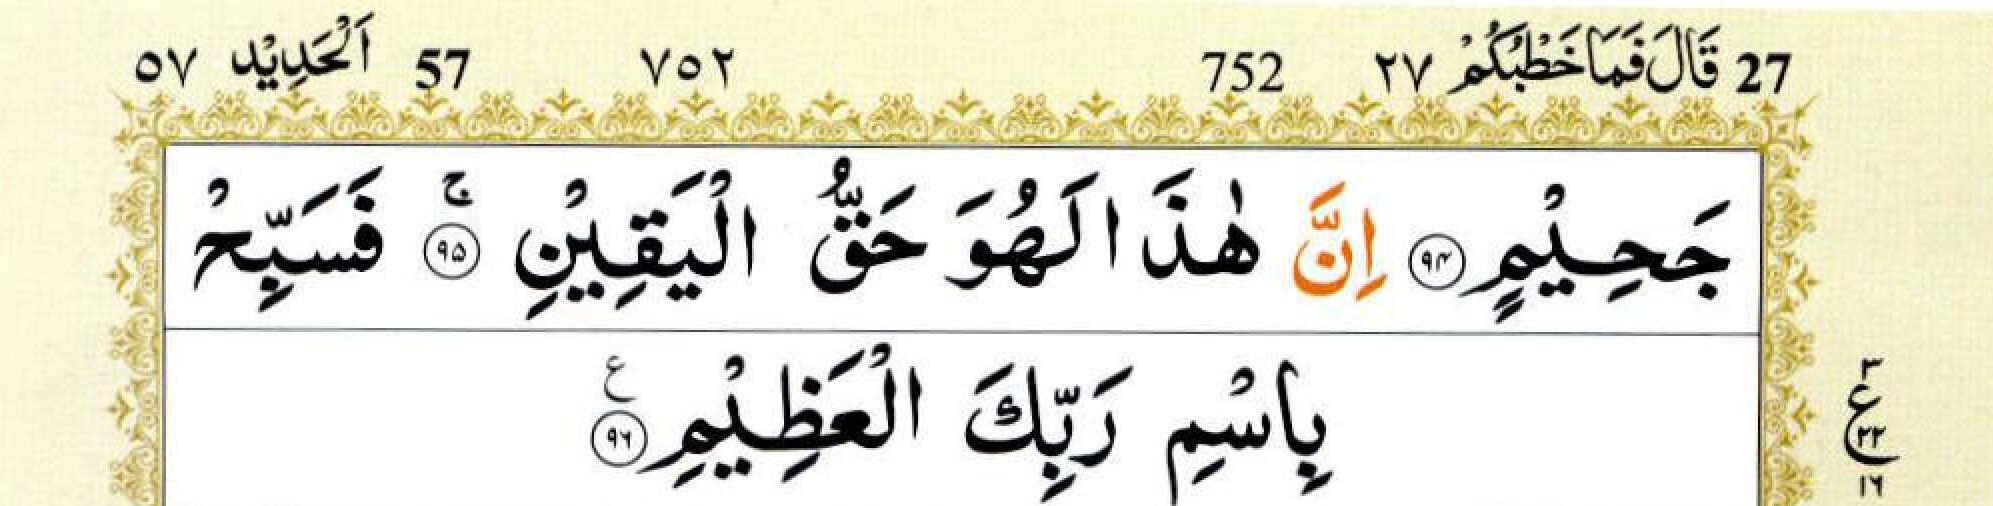 27 قَالَ فَمَا خَطْبُكُمْ ٢٧ 752 ٧٥٢ 57 اَلْحَدِيْد ٥٧
جَحِيْمٍ ۝٩٤ اِنَّ هٰذَا لَهُوَ حَقُّ الْيَقِيْنِ ۝٩٥ ۚ فَسَبِّحْ
بِاسْمِ رَبِّكَ الْعَظِيْمِ ۝٩٦ ع
٣
ع
٢٢
١٦